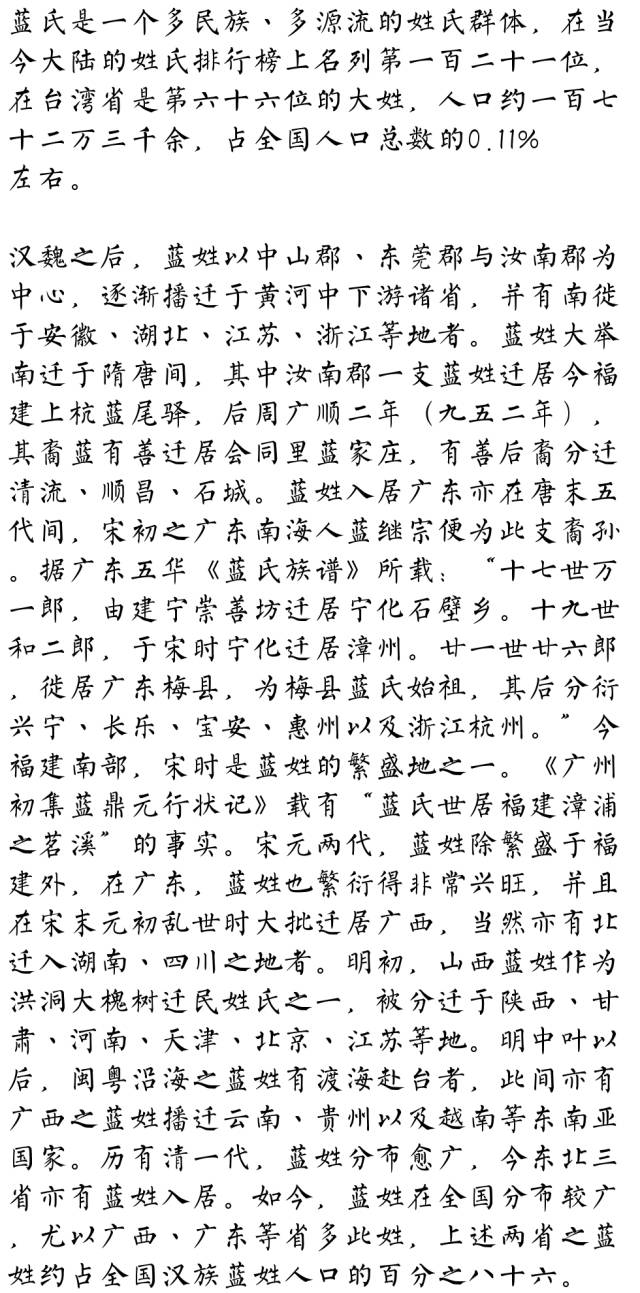 蓝氏是一个多民族、多源流的姓氏群体，在当
今大陆的姓氏排行榜上名列第一百二十一位，
在台湾省是第六十六位的大姓，人口约一百七
十二万三千余，占全国人口总数的0.11%
左右。
汉魏之后，蓝姓以中山郡、东莞郡与汝南郡为
中心，逐渐播迁于黄河中下游诸省，并有南徙
于安徽、湖北、江苏、浙江等地者。蓝姓大举
南迁于隋唐间，其中汝南郡一支蓝姓迁居今福
建上杭蓝尾驿，后周广顺二年（九五二年），
其裔蓝有善迁居会同里蓝家庄，有善后裔分迁
清流、顺昌、石城。蓝姓入居广东亦在唐末五
代间，宋初之广东南海人蓝继宗便为此支裔孙
。据广东五华《蓝氏族谱》所载：“十七世万
一郎，由建宁崇善坊迁居宁化石壁乡。十九世
和二郎，于宋时宁化迁居漳州。廿一世廿六郎
，徙居广东梅县，为梅县蓝氏始祖，其后分衍
兴宁、长乐、宝安、惠州以及浙江杭州。”今
福建南部，宋时是蓝姓的繁盛地之一。《广州
初集蓝鼎元行状记》载有“蓝氏世居福建漳浦
之苕溪”的事实。宋元两代，蓝姓除繁盛于福
建外，在广东，蓝姓也繁衍得非常兴旺，并且
在宋末元初乱世时大批迁居广西，当然亦有北
迁入湖南、四川之地者。明初，山西蓝姓作为
洪洞大槐树迁民姓氏之一，被分迁于陕西、甘
肃、河南、天津、北京、江苏等地。明中叶以
后，闽粤沿海之蓝姓有渡海赴台者，此间亦有
广西之蓝姓播迁云南、贵州以及越南等东南亚
国家。历有清一代，蓝姓分布愈广，今东北三
省亦有蓝姓入居。如今，蓝姓在全国分布较广
，尤以广西、广东等省多此姓，上述两省之蓝
姓约占全国汉族蓝姓人口的百分之八十六。